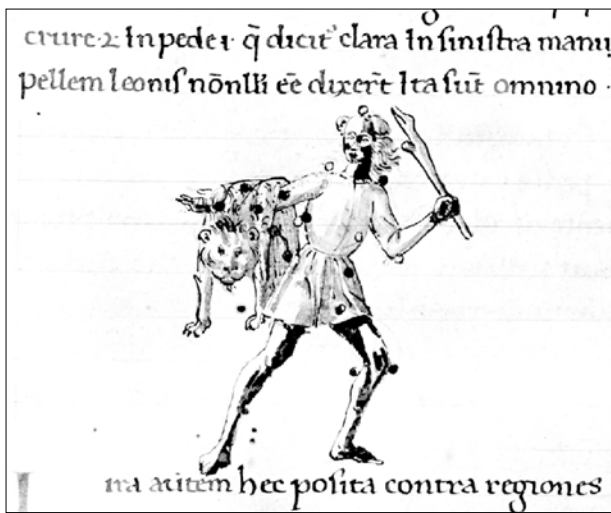 crure·2 In pede·1· q̄ dicit᷒ clara In sinistra manu
pellem leonis nōnlli eē dixer̄t Ita sūt omnino ·
ira autem hec posita contra regiones